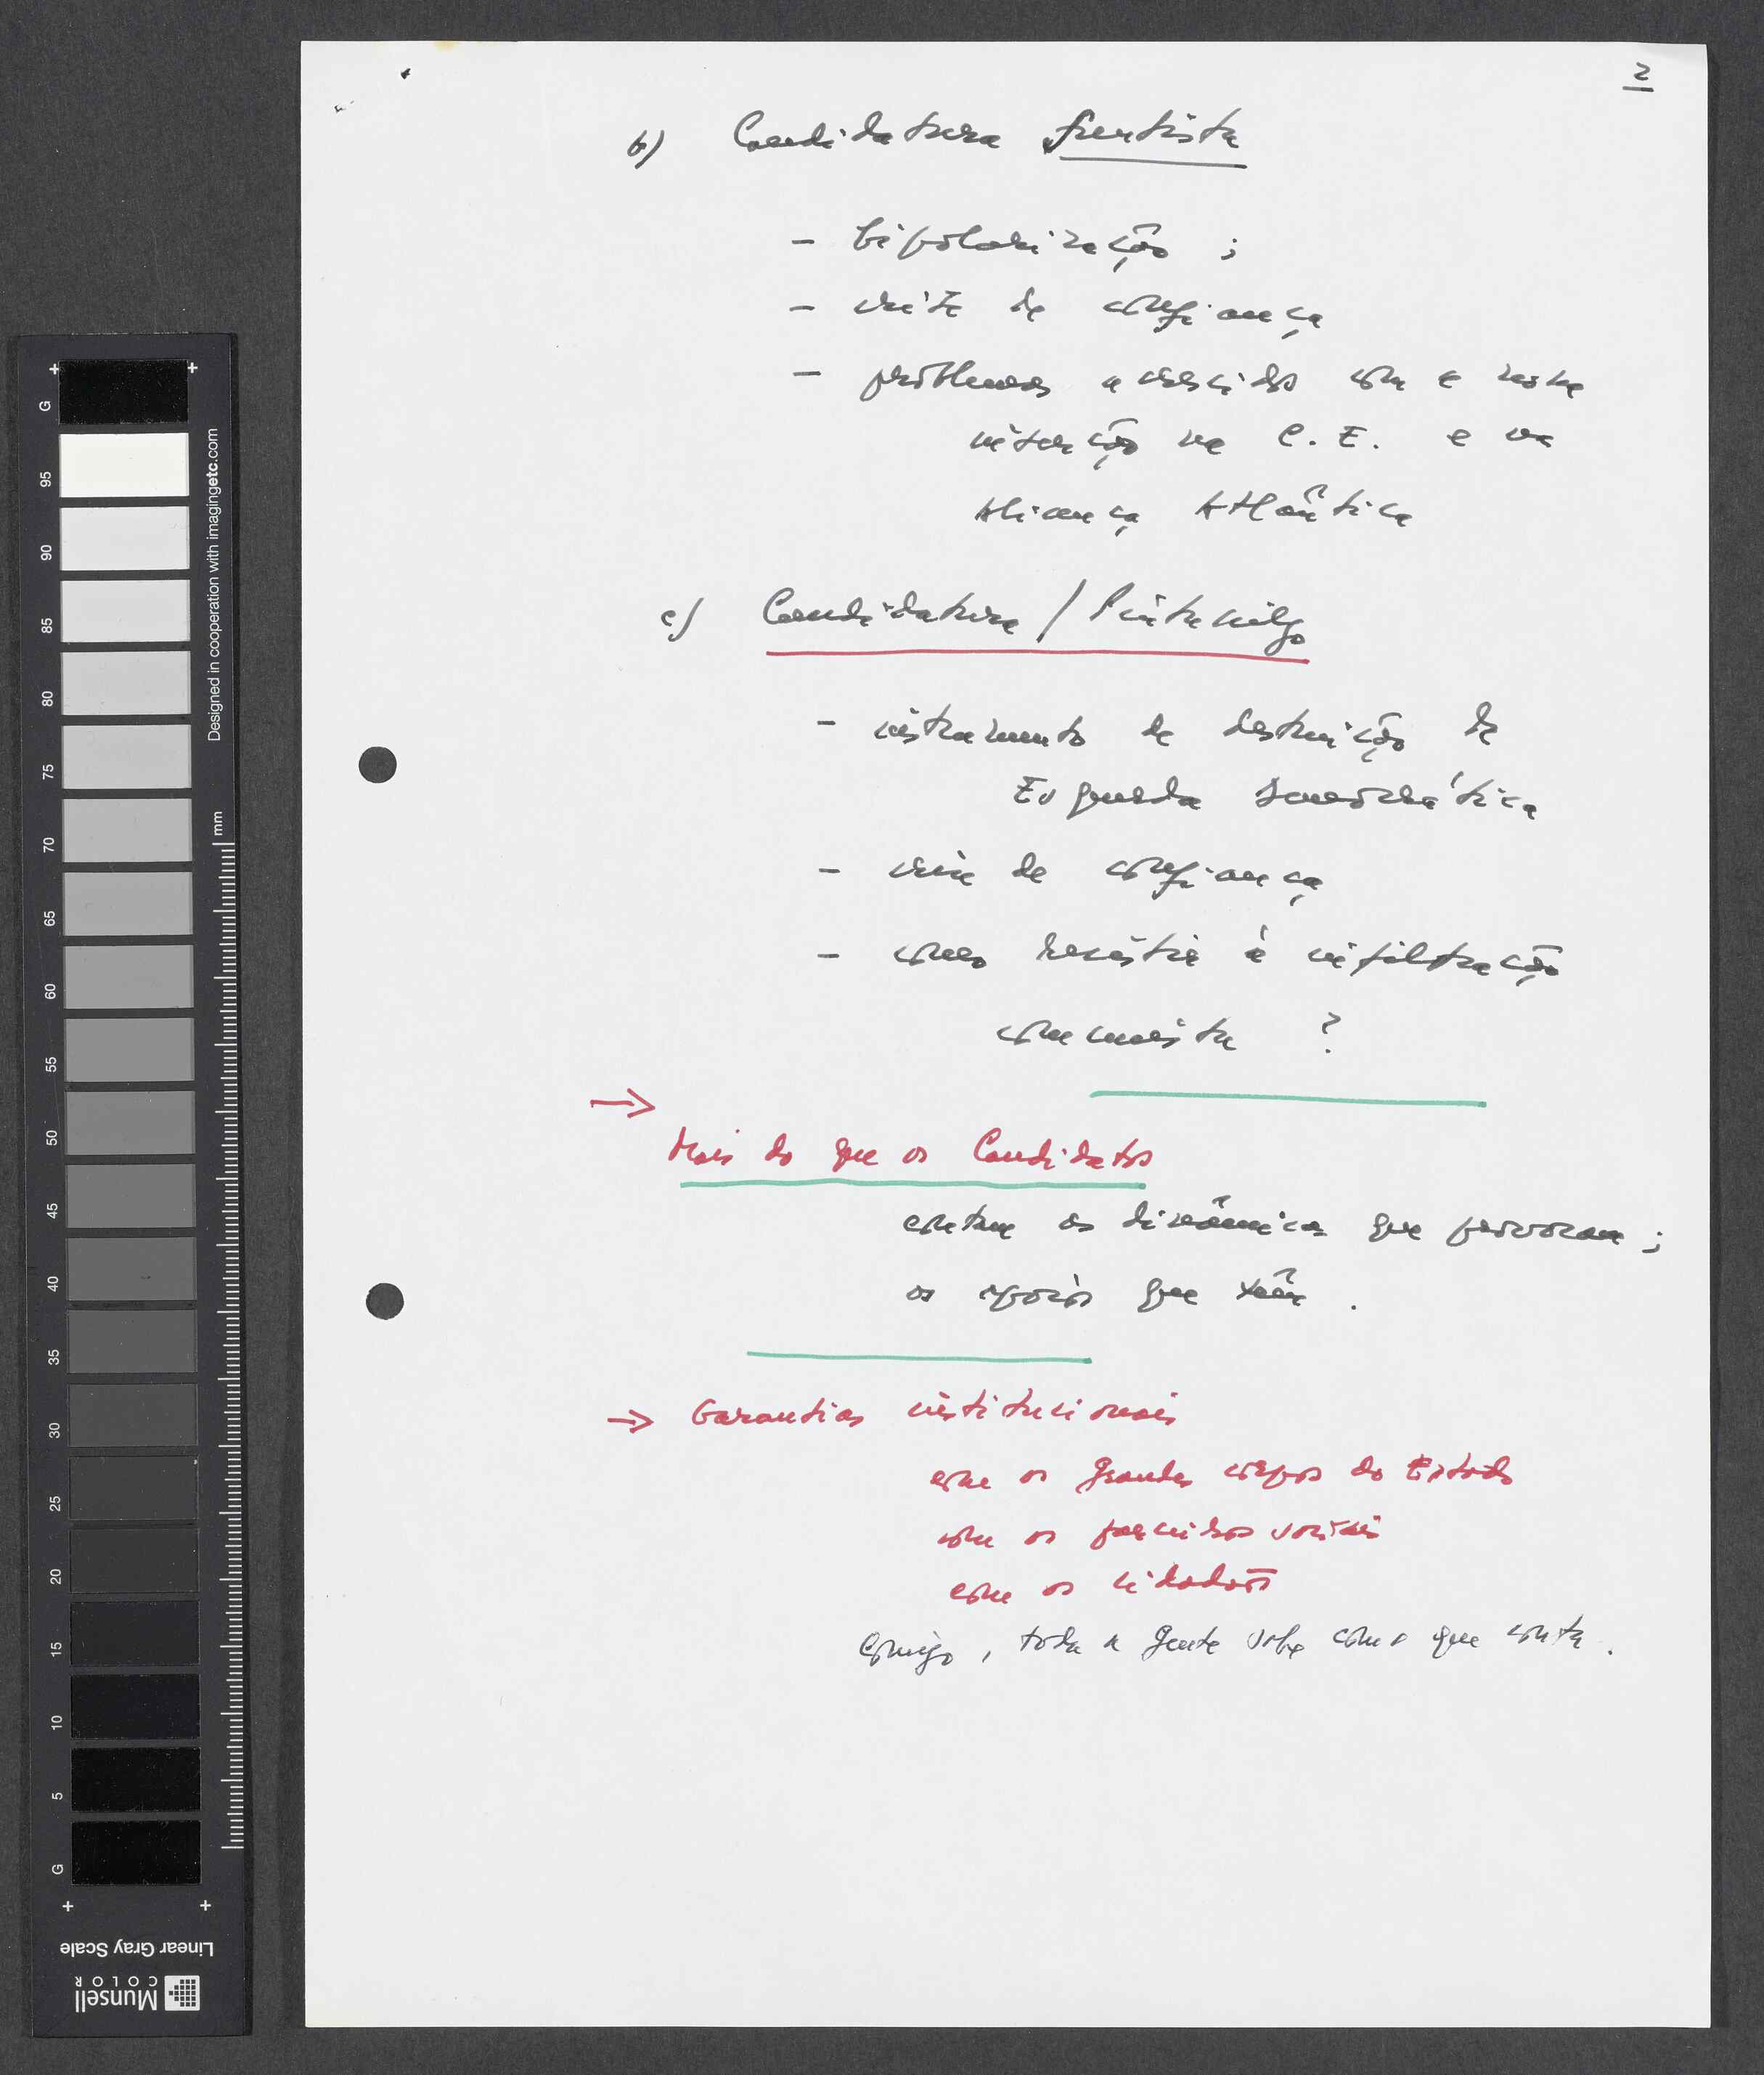 2
b) Candidatura frentista
- bipolarização ;
- crise de confiança
- problemas acrescidos com a nossa
integração na C. E. e na
Aliança Atlântica
c) Candidatura / Pintasilgo
- instrumento de destruição da
Esquerda Democrática
- crise de confiança
- como resistir à infiltração
comunista ?
→
Mais do que os Candidatos
contam as dinâmicas que provocam ;
os apoios que têm .
→ Garantias institucionais
com os grandes corpos do Estado
com os parceiros sociais
com os cidadãos
Comigo , toda a gente sabe com o que conta .
G
95
90
85
80
75
70
65
60
55
50
45
40
35
30
25
20
15
10
5
G
mm
Designed in cooperation with imagingetc.com
Linear Gray Scale
Munsell
COLOR